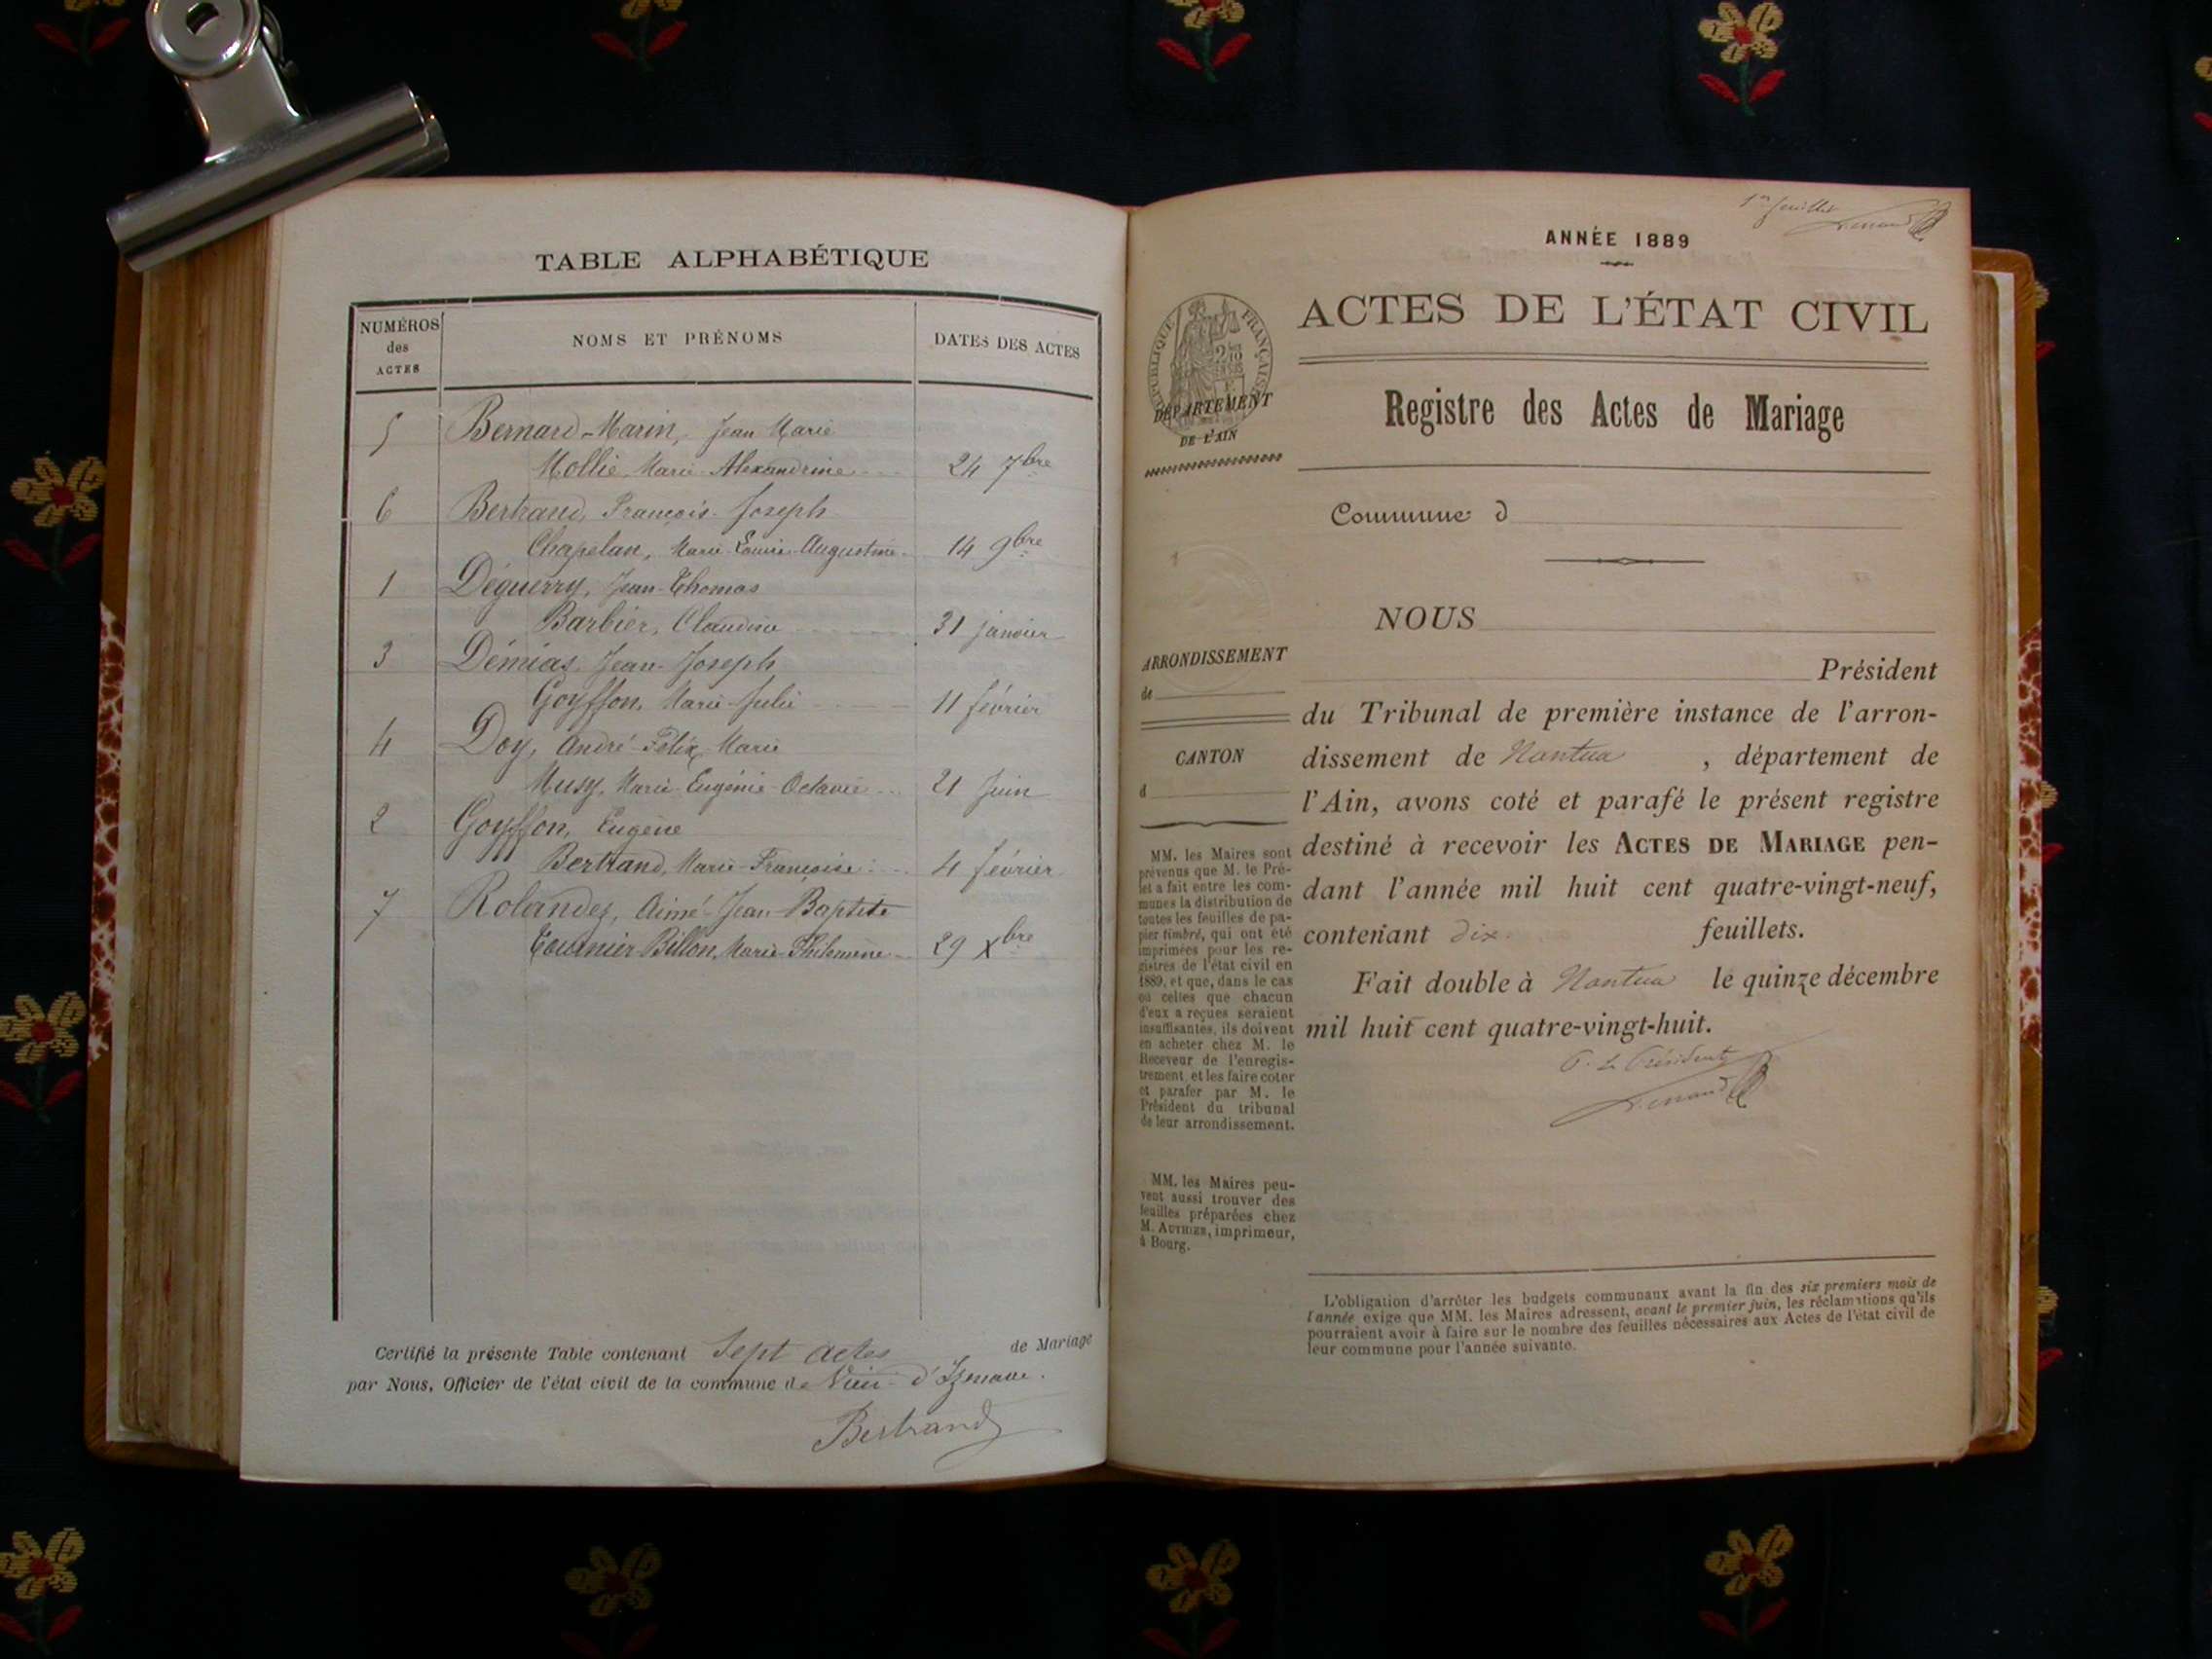 TABLE ALPHABÉTIQUE
NUMÉROS des ACTES
NOMS ET PRÉNOMS
DATES DES ACTES
5 Bernard-Marin, Jean Marie
Mollie Marie-Alexandrine 24 7bre
6 Bertrand, François-Joseph
Chapelan, Marie-Louise-Augustine 14 9bre
1 Déguerry, Jean-Thomas
Barbier, Claudine 31 janvier
3 Démias Jean-Joseph
Goyffon, Marie-Julie 11 février
4 Doy, André-Félix Marie
Musy, Marie-Eugénie-Octavie 21 Juin
2 Goyffon, Eugène
Bertrand, Marie-Françoise 4 février
7 Rolandez, Aimé-Jean-Baptiste
Tournier-Billon, Marie-Philomène 29 Xbre
Certifié la présente Table contenant Sept actes de Mariage
par Nous, Officier de l'état civil de la commune de Vieu-d'Izenave.
Bertrand
1er feuillet
ANNÉE 1889
ACTES DE L'ÉTAT CIVIL
RÉPUBLIQUE FRANÇAISE
DÉPARTEMENT
DE L'AIN
Registre des Actes de Mariage
Commune d
NOUS
ARRONDISSEMENT
de
CANTON
d
Président
du Tribunal de première instance de l'arron-
dissement de Nantua , département de
l'Ain, avons coté et parafé le présent registre
destiné à recevoir les ACTES DE MARIAGE pen-
dant l'année mil huit cent quatre-vingt-neuf,
contenant dix feuillets.
Fait double à Nantua le quinze décembre
mil huit cent quatre-vingt-huit.
P. Le Président
MM. les Maires sont
prévenus que M. le Pré-
fet a fait entre les com-
munes la distribution de
toutes les feuilles de pa-
pier timbré, qui ont été
imprimées pour les re-
gistres de l'état civil en
1889, et que, dans le cas
où celles que chacun
d'eux a reçues seraient
insuffisantes, ils doivent
en acheter chez M. le
Receveur de l'enregis-
trement, et les faire coter
et parafer par M. le
Président du tribunal
de leur arrondissement.
MM. les Maires peu-
vent aussi trouver des
feuilles préparées chez
M. AUTHIER, imprimeur,
à Bourg.
L'obligation d'arrêter les budgets communaux avant la fin des six premiers mois de
l'année exige que MM. les Maires adressent, avant le premier juin, les réclamations qu'ils
pourraient avoir à faire sur le nombre des feuilles nécessaires aux Actes de l'état civil de
leur commune pour l'année suivante.